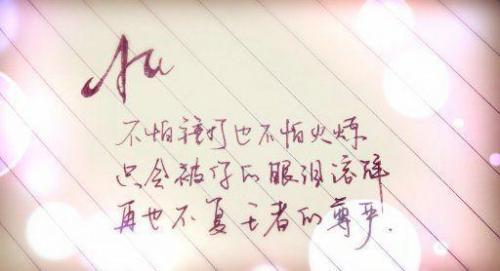 Au
不怕锤打也不怕火炼
只会被你的眼泪滚碎
再也不复王者的尊严.